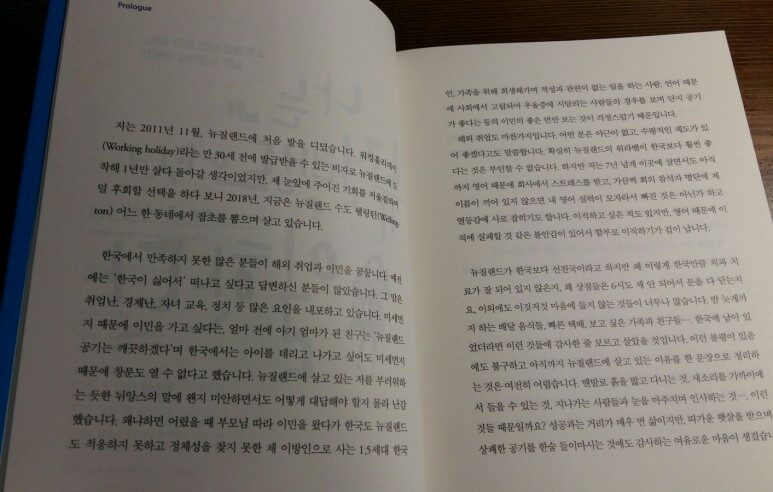 Prologue
저는 2011년 11월, 뉴질랜드에 처음 발을 디뎠습니다. 워킹홀리데이
(Working holiday)라는 만 30세 전에 발급받을 수 있는 비자로 뉴질랜드에 도
착해 1년만 살다 돌아갈 생각이었지만, 제 눈앞에 주어진 기회를 저울질하며
덜 후회할 선택을 하다 보니 2018년, 지금은 뉴질랜드 수도 웰링턴(Welling
ton) 어느 한 동네에서 잡초를 뽑으며 살고 있습니다.
한국에서 만족하지 못한 많은 분들이 해외 취업과 이민을 꿈꿉니다. 예전
에는 '한국이 싫어서' 떠나고 싶다고 답변하신 분들이 많았습니다. 그 말은
취업난, 경제난, 자녀 교육, 정치 등 많은 요인을 내포하고 있습니다. 미세먼
지 때문에 이민을 가고 싶다는, 얼마 전에 아기 엄마가 된 친구는 '뉴질랜드
공기는 깨끗하겠다'며 한국에서는 아이를 데리고 나가고 싶어도 미세먼지
때문에 창문도 열 수 없다고 했습니다. 뉴질랜드에 살고 있는 저를 부러워하
는 듯한 뉘앙스의 말에 왠지 미안하면서도 어떻게 대답해야 할지 몰라 난감
했습니다. 왜냐하면 어렸을 때 부모님 따라 이민을 왔다가 한국도 뉴질랜드
도 적응하지 못하고 정체성을 찾지 못한 채 이방인으로 사는 1.5세대 한국
인, 가족을 위해 희생해가며 적성과 관련이 없는 일을 하는 사람, 언어 때문
에 사회에서 고립되어 우울증에 시달리는 사람들의 경우를 보며 단지 공기
가 좋다는 등의 이민의 좋은 면만 보는 것이 걱정스럽기 때문입니다.
해외 취업도 마찬가지입니다. 어떤 분은 야근이 없고, 수평적인 제도가 있
어 좋겠다고도 말씀합니다. 확실히 뉴질랜드의 워라밸이 한국보다 훨씬 좋
다는 것은 부인할 수 없습니다. 하지만 저는 7년 넘게 이곳에 살면서도 아직
까지 영어 때문에 회사에서 스트레스를 받고, 가끔씩 회의 참석자 명단에 제
이름이 끼어 있지 않으면 내 영어 실력이 모자라서 빠진 것은 아닌가 하고
열등감에 사로 잡히기도 합니다. 이직하고 싶은 적도 있지만, 영어 때문에 이
직에 실패할 것 같은 불안감이 있어서 함부로 이직하기가 겁이 납니다.
뉴질랜드가 한국보다 선진국이라고 하지만 왜 어떻게 한국만큼 치과 치
료가 잘 되어 있지 않은지, 왜 상점들은 6시도 채 안 되어서 문을 다 닫는지
요. 이외에도 이것저것 마음에 들지 않는 것들이 너무나 많습니다. 밤 늦게까
지 하는 배달 음식들, 빠른 택배, 보고 싶은 가족과 친구들…. 한국에 남아 있
었더라면 이런 것들에 감사한 줄 모르고 살았을 것입니다. 이런 불평이 있음
에도 불구하고 아직까지 뉴질랜드에 살고 있는 이유를 한 문장으로 정리하
는 것은 여전히 어렵습니다. 맨발로 흙을 밟고 다니는 것, 새소리를 가까이에
서 들을 수 있는 것, 지나가는 사람들과 눈을 마주치며 인사하는 것…. 이런
것들 때문일까요? 성공과는 거리가 매우 먼 삶이지만, 따가운 햇살을 받으며
상쾌한 공기를 한숨 들이마시는 것에도 감사하는 여유로운 마음이 생겼습니